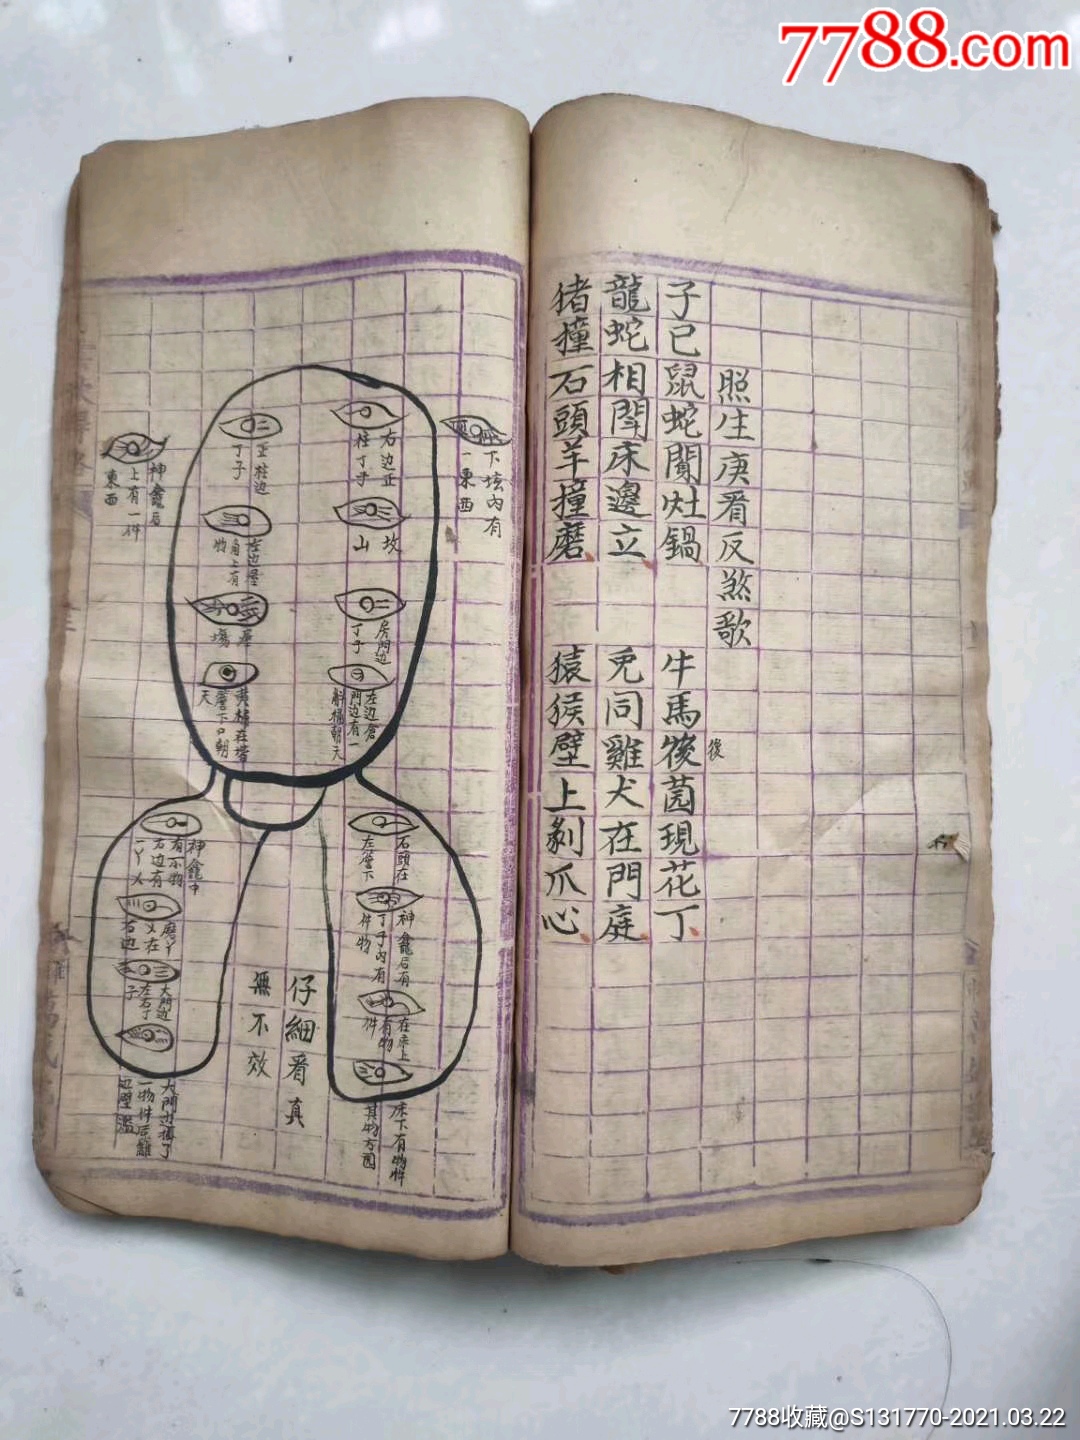 7788.com
照生庚看反煞歌
子巳鼠蛇鬧灶鍋
牛馬筱菌現花丁
後
龍蛇相鬥床邊立
兎同雞犬在門庭
猪撞石頭羊撞磨
猿猴壁上剝爪心
下坛內有
一東西
右边正
柱丁子
正柱边
丁子
神龕后
上有一件
東西
坟
山
左边壁
角上有
物
房門边
丁子
屋
場
左边倉
門边有一
斛桶朝天
天
石頭在
左簷下
神龕中
有不物
右边有
神龕后有
丁子內有
件物
磨丫
乂在
右边
大門边
左右丁
子
在床上
有物
件
床下有物件
其物方圓
仔細看真
無不效
7788收藏@S131770-2021.03.22